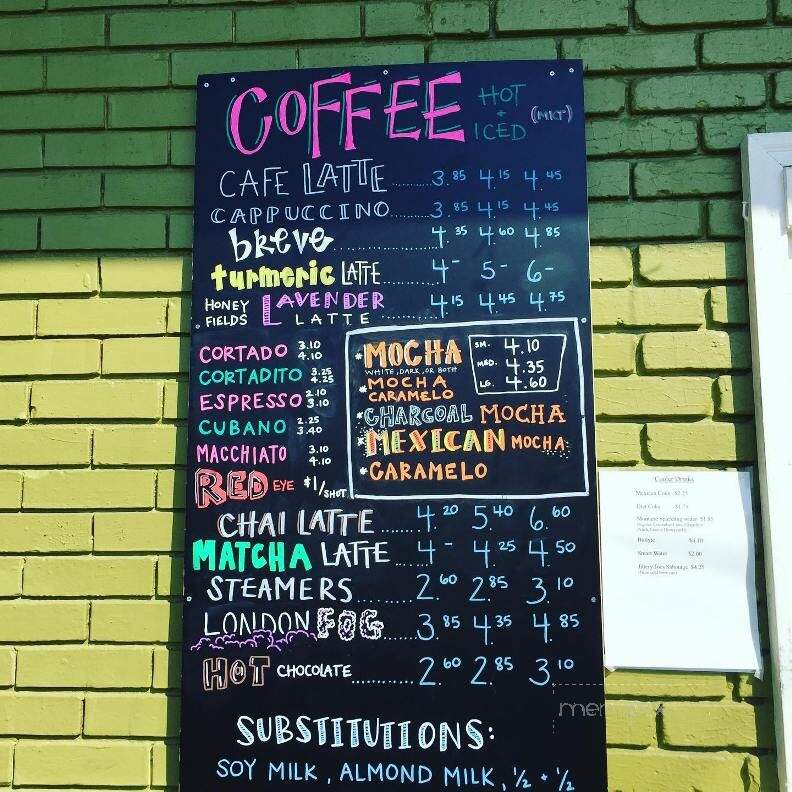 COFFEE HOT + ICED (MKT)
CAFE LATTE.......... 3.85 4.15 4.45
CAPPUCCINO...... 3.85 4.15 4.45
breve.............. 4.35 4.60 4.85
turmeric LATTE....... 4- 5- 6-
HONEY FIELDS LAVENDER LATTE 4.15 4.45 4.75
CORTADO 3.10 4.10
CORTADITO 3.25 4.25
ESPRESSO 2.10 3.10
CUBANO 2.25 3.40
MACCHIATO 3.10 4.10
RED EYE $1/SHOT
*MOCHA
WHITE, DARK, OR BOTH
SM. 4.10
MED. 4.35
LG. 4.60
*MOCHA CARAMELO
*CHARCOAL MOCHA
*MEXICAN MOCHA
*CARAMELO
CHAI LATTE.... 4.20 5.40 6.60
MATCHA LATTE... 4- 4.25 4.50
STEAMERS....... 2.60 2.85 3.10
LONDON FOG.... 3.85 4.35 4.85
HOT CHOCOLATE........... 2.60 2.85 3.10
SUBSTITUTIONS:
SOY MILK, ALMOND MILK, ½ + ½
Cooler Drinks
Mexican Coke $2.25
Diet Coke $1.75
Smart Water $2.00